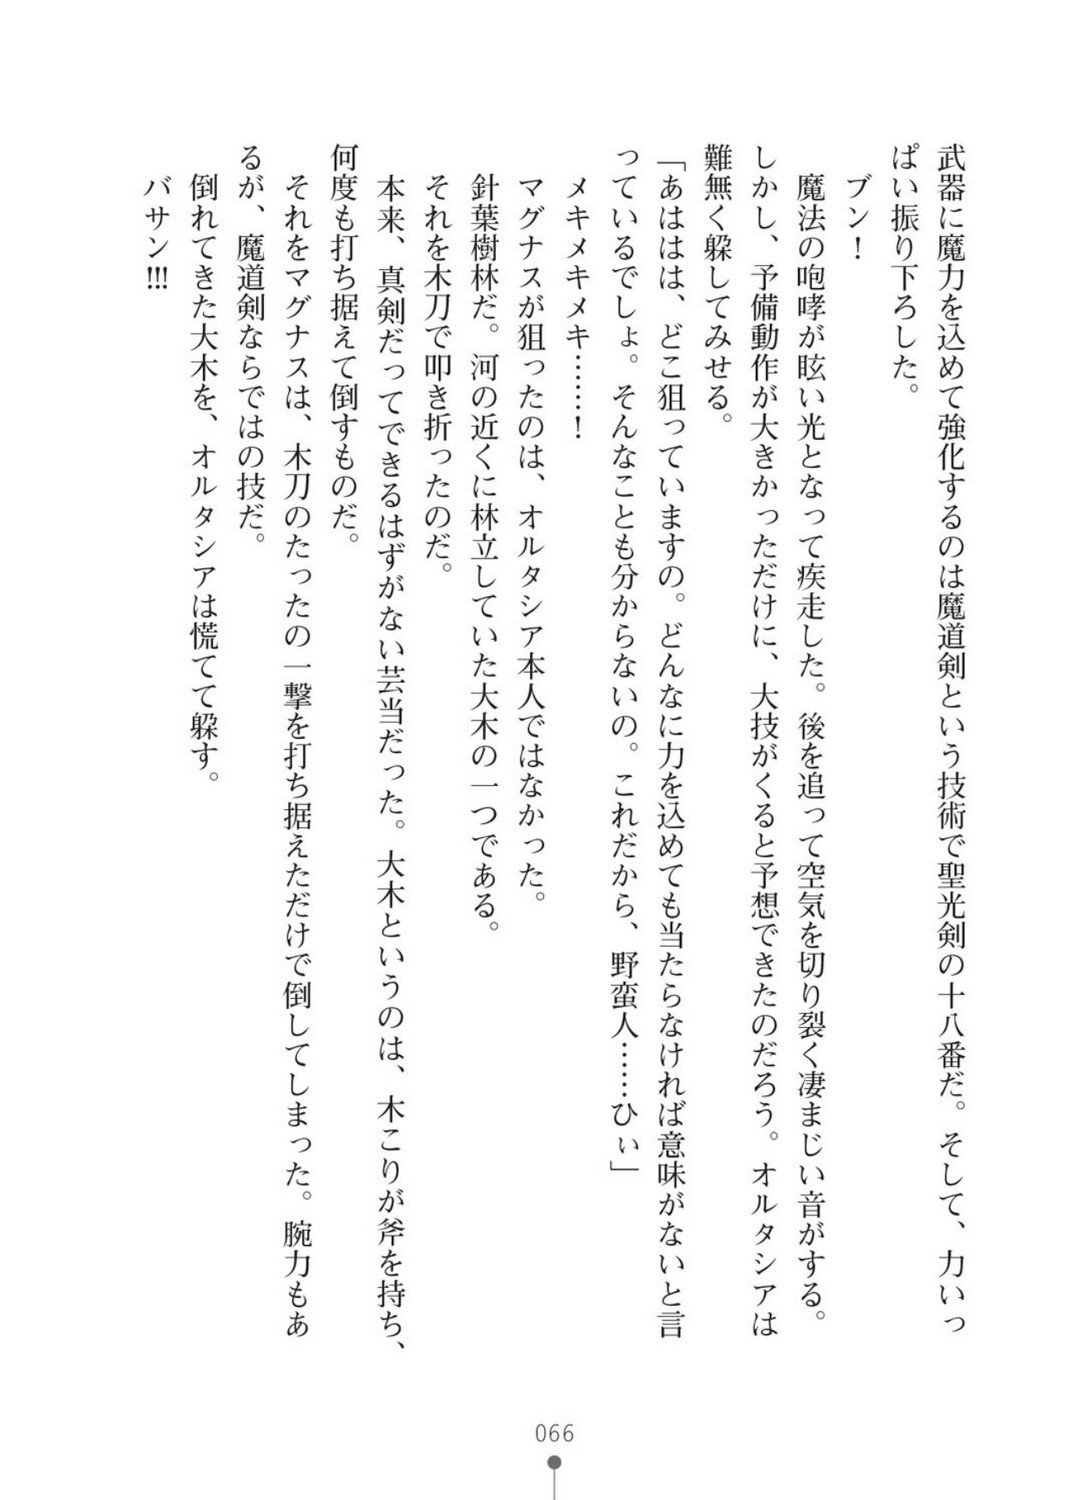 武器に魔力を込めて強化するのは魔道剣という技術で聖光剣の十八番だ。そして、力いっ
ぱい振り下ろした。
ブン！
魔法の咆哮が眩い光となって疾走した。後を追って空気を切り裂く凄まじい音がする。
しかし、予備動作が大きかっただけに、大技がくると予想できたのだろう。オルタシアは
難無く躱してみせる。
「あははは、どこ狙っていますの。どんなに力を込めても当たらなければ意味がないと言
っているでしょ。そんなことも分からないの。これだから、野蛮人……ひぃ」
メキメキメキ……！
マグナスが狙ったのは、オルタシア本人ではなかった。
針葉樹林だ。河の近くに林立していた大木の一つである。
それを木刀で叩き折ったのだ。
本来、真剣だってできるはずがない芸当だった。大木というのは、木こりが斧を持ち、
何度も打ち据えて倒すものだ。
それをマグナスは、木刀のたったの一撃を打ち据えただけで倒してしまった。腕力もあ
るが、魔道剣ならではの技だ。
倒れてきた大木を、オルタシアは慌てて躱す。
バサン!!!
066